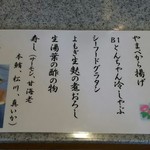 やまべから揚げ
B1とんちゃん冷しゃぶ
シーフードグラタン
よもぎ生麩の煮おろし
生湯葉の酢の物
寿し(サーモン、甘海老
本鮪、松川、真いか)